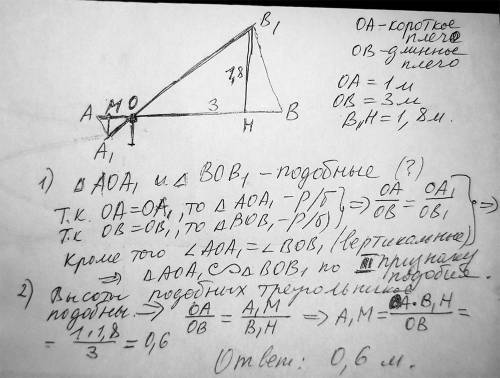 B₁
OA - короткое
плечо
OB - длинное
плечо
OA = 1 м
OB = 3 м
B₁H = 1,8 м.
1,8
A M O 3 H B
A₁
1) △AOA₁ и △BOB₁ - подобные (?)
Т.к. OA = OA₁, то △AOA₁ - р/б
Т.к OB = OB₁, то △BOB₁ - р/б) } ⇒ OA/OB = OA₁/OB₁ } ⇒
Кроме того ∠AOA₁ = ∠BOB₁ (вертикальные)
⇒ △AOA₁ ∽ △BOB₁ по III признаку
подобия.
2) Высоты подобных треугольников
подобны. ⇒ OA/OB = A₁M/B₁H ⇒ A₁M = OA·B₁H/OB =
= 1·1,8/3 = 0,6
Ответ: 0,6 м.